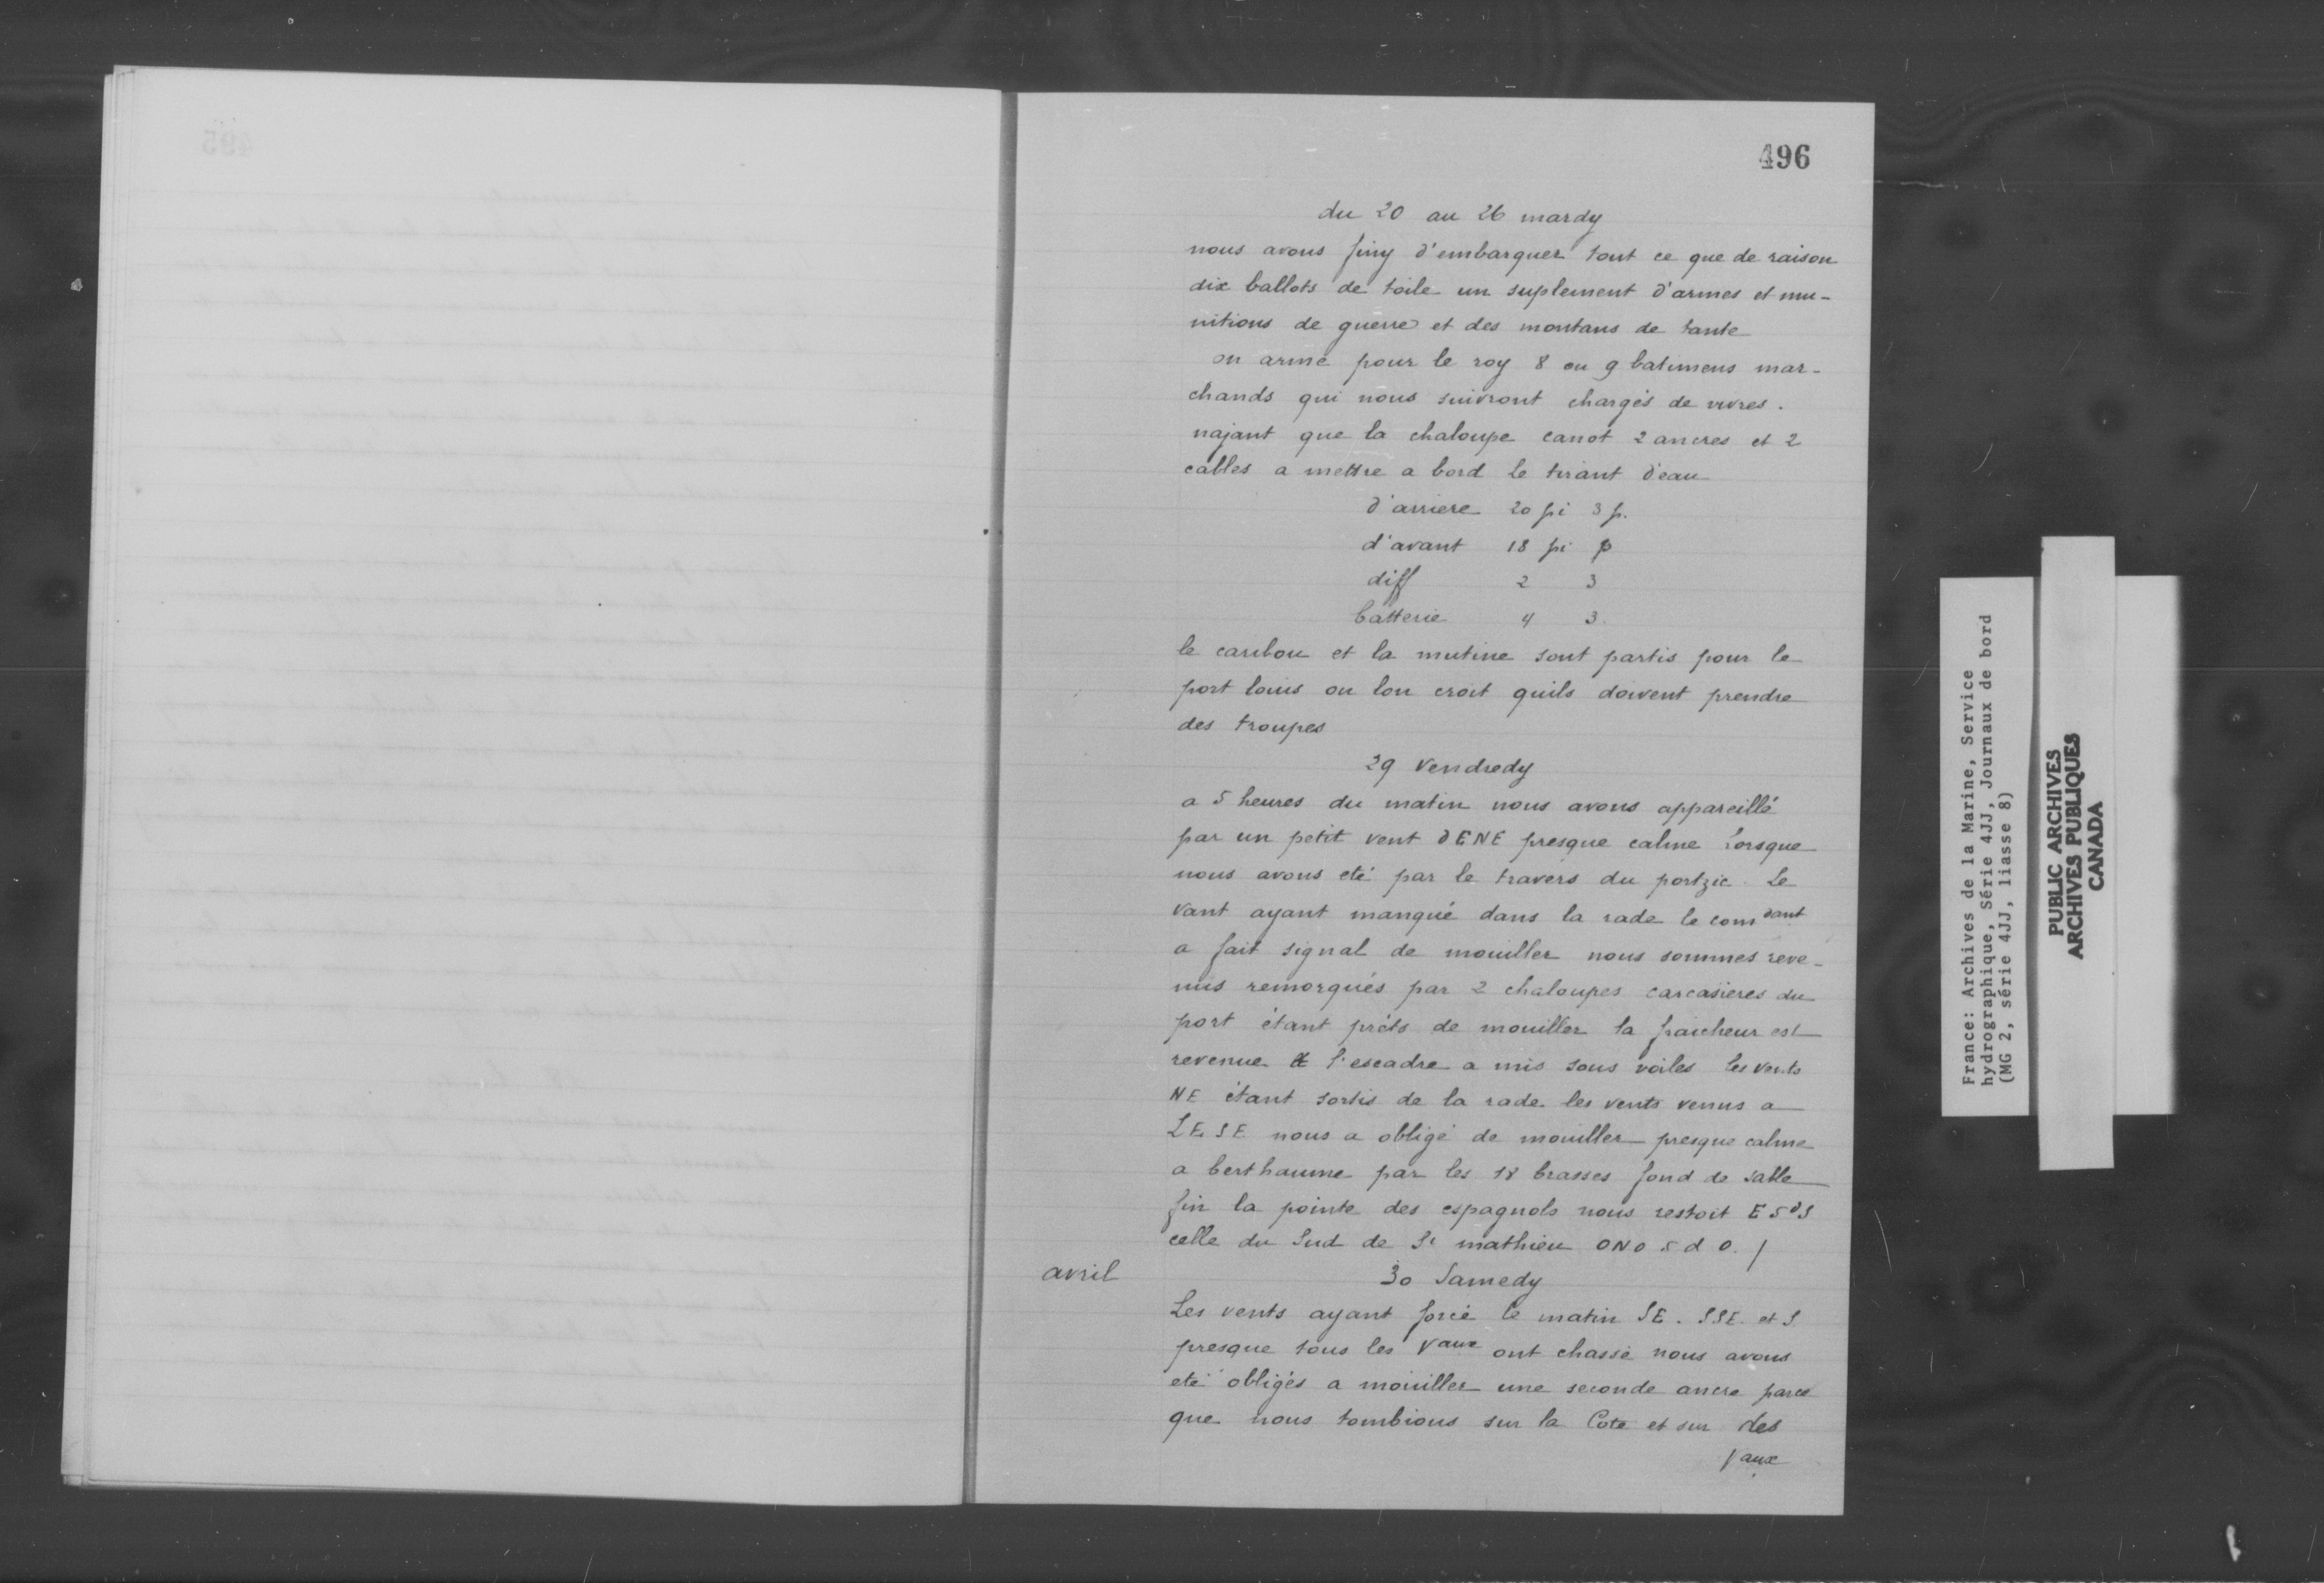 496
du 20 au 26 mardy
nous avons finy d'embarquer tout ce que de raison
dix ballots de toile un suplement d'armes et mu-
nitions de guerre et des montans de tante
on arme pour le roy 8 ou 9 batimens mar-
chands qui nous suivront chargés de vivres.
najant que la chaloupe canot 2 ancres et 2
cables a mettre a bord le tirant d'eau
d'arriere 20 pi 3 p.
d'avant 18 pi p
diff 2 3
batterie 4 3.
le caribou et la mutine sont partis pour le
port louis ou lon croit quils doivent prendre
des troupes
29 Vendredy
a 5 heures du matin nous avons appareillé
par un petit vent dENE presque calme Lorsque
nous avons eté par le travers du portzic. Le
vant ayant manqué dans la rade le comdant
a fait signal de mouiller nous sommes reve-
nus remorqués par 2 chaloupes carcasieres du
port étant préts de mouiller la fraicheur est
revenue et l'escadre a mis sous voiles les vents
NE étant sortis de la rade les vents venus a
LESE nous a obligé de mouiller presque calme
a berthaume par les 18 brasses fond de sable
fin la pointe des espagnols nous restoit E 5d S
celle du Sud de St mathieu ONO 5 d O. /
avril
30 Samedy
Les vents ayant forcé le matin SE. SSE. et S
presque tous les Vaux ont chassé nous avons
eté obligés a mouiller une seconde ancre parce
que nous tombions sur la Cote et sur des
Vaux
France: Archives de la Marine, Service
hydrographique, Série 4JJ, Journaux de bord
(MG 2, série 4JJ, liasse 8)
PUBLIC ARCHIVES
ARCHIVES PUBLIQUES
CANADA